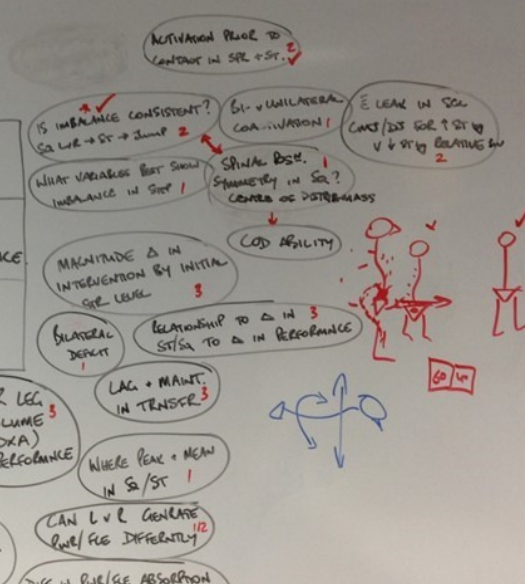 ACTIVATION PRIOR TO
CONTACT IN SPR + ST. 2
IS IMBALANCE CONSISTENT?
SQ LVR → ST → JUMP 2
BI- v UNILATERAL
1
E LEAK IN SQ
RELATIVE
2
WHAT VARIABLES BEST SHOW
IMBALANCE IN STEP 1
SPINAL 1
SYMMETRY IN SQ?
CENTRE OF MASS
COD ABILITY
MAGNITUDE Δ IN
INTERVENTION BY INITIAL
STR LEVEL 3
BILATERAL
DEFICIT
1
RELATIONSHIP TO Δ IN 3
ST/SQ TO Δ IN PERFORMANCE
60 40
LAG + MAINT.
IN TRNSFR 3
R LEG
LUME 3
DXA)
PERFORMANCE
WHERE PEAK + MEAN
IN SQ/ST 1
CAN L v R GENRATE
PWR/FCE DIFFERNTLY 1/2
DIFF IN PWR/FCE ABSORPTION